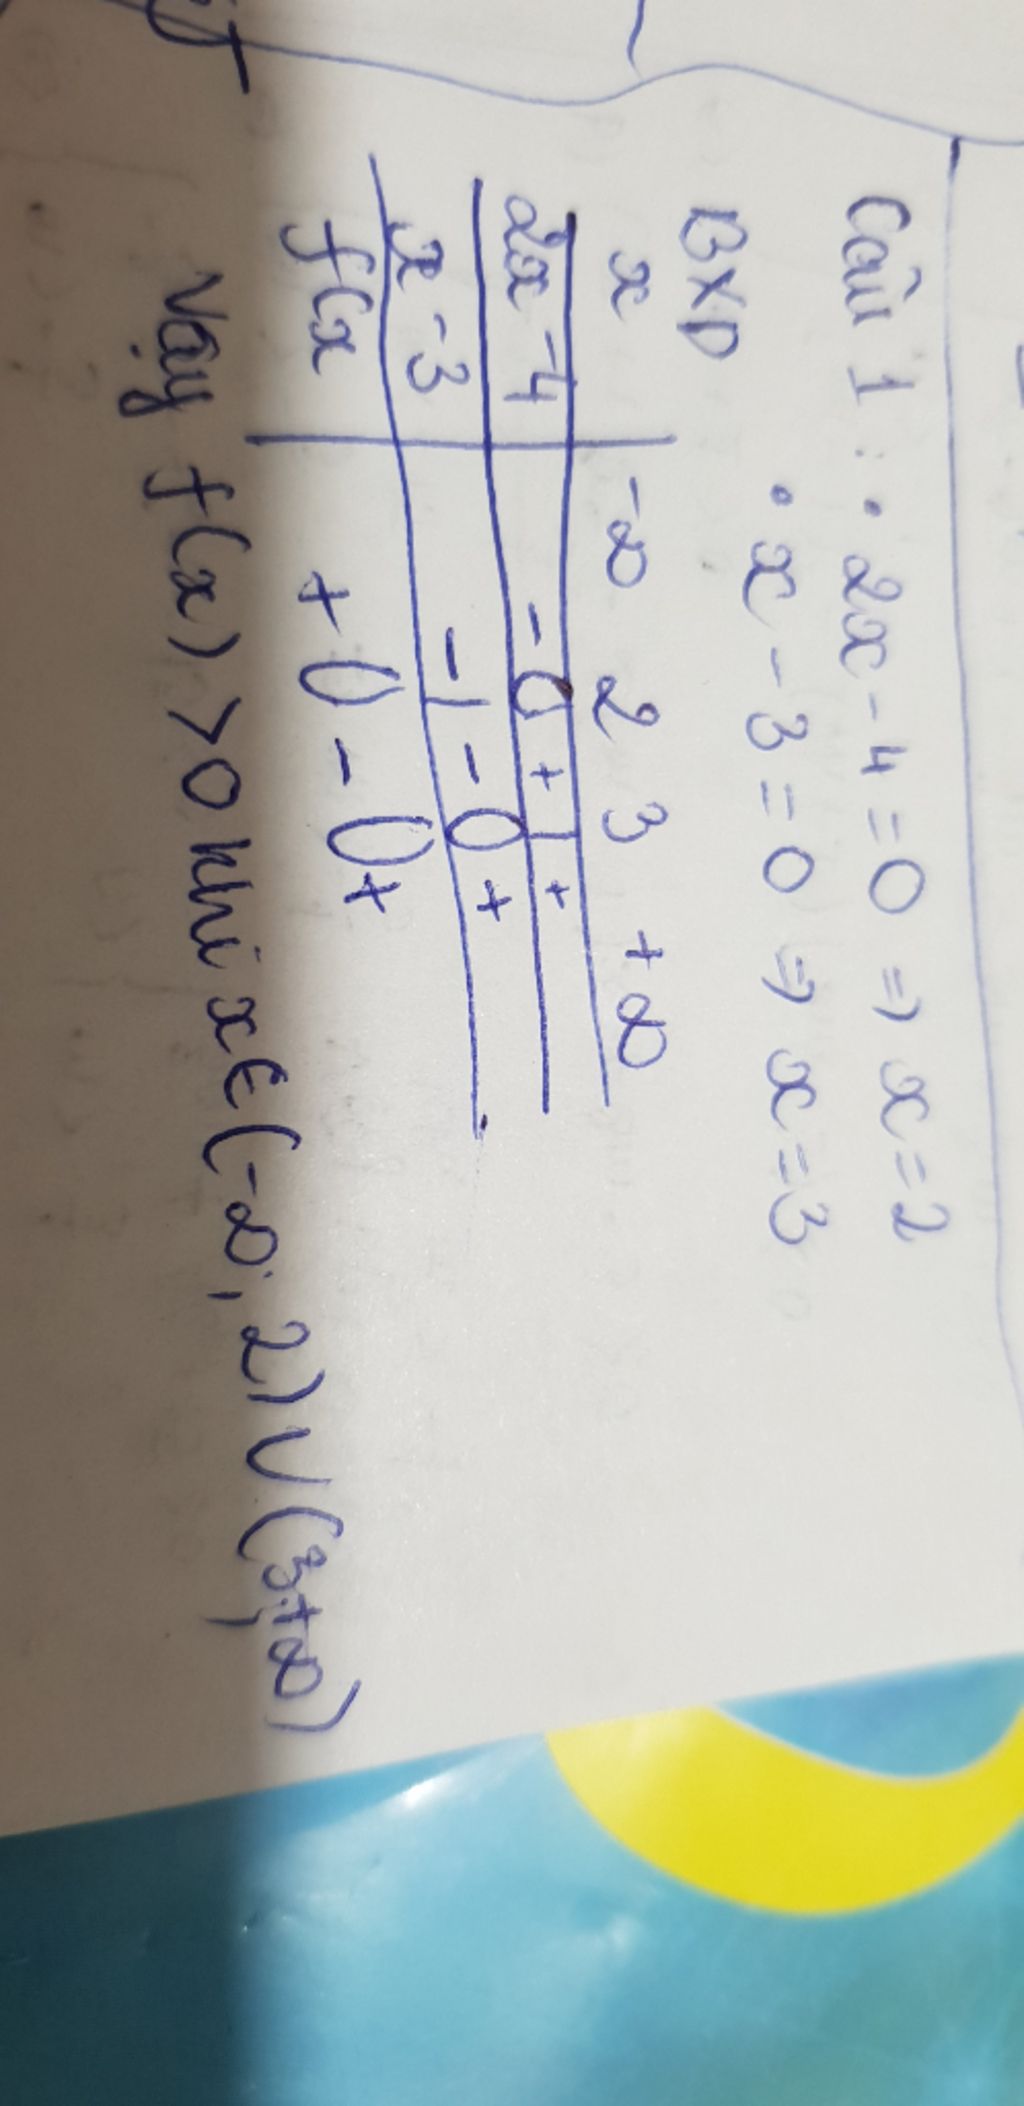 Câu 1 : • 2x - 4 = 0 => x = 2
• x - 3 = 0 => x = 3
BXD
x -∞ 2 3 +∞
2x - 4 - 0 + | +
x - 3 - | - 0 +
f(x + 0 - 0 +
Vậy f(x) > 0 khi x ∈ (-∞; 2) ∪ (3; +∞)